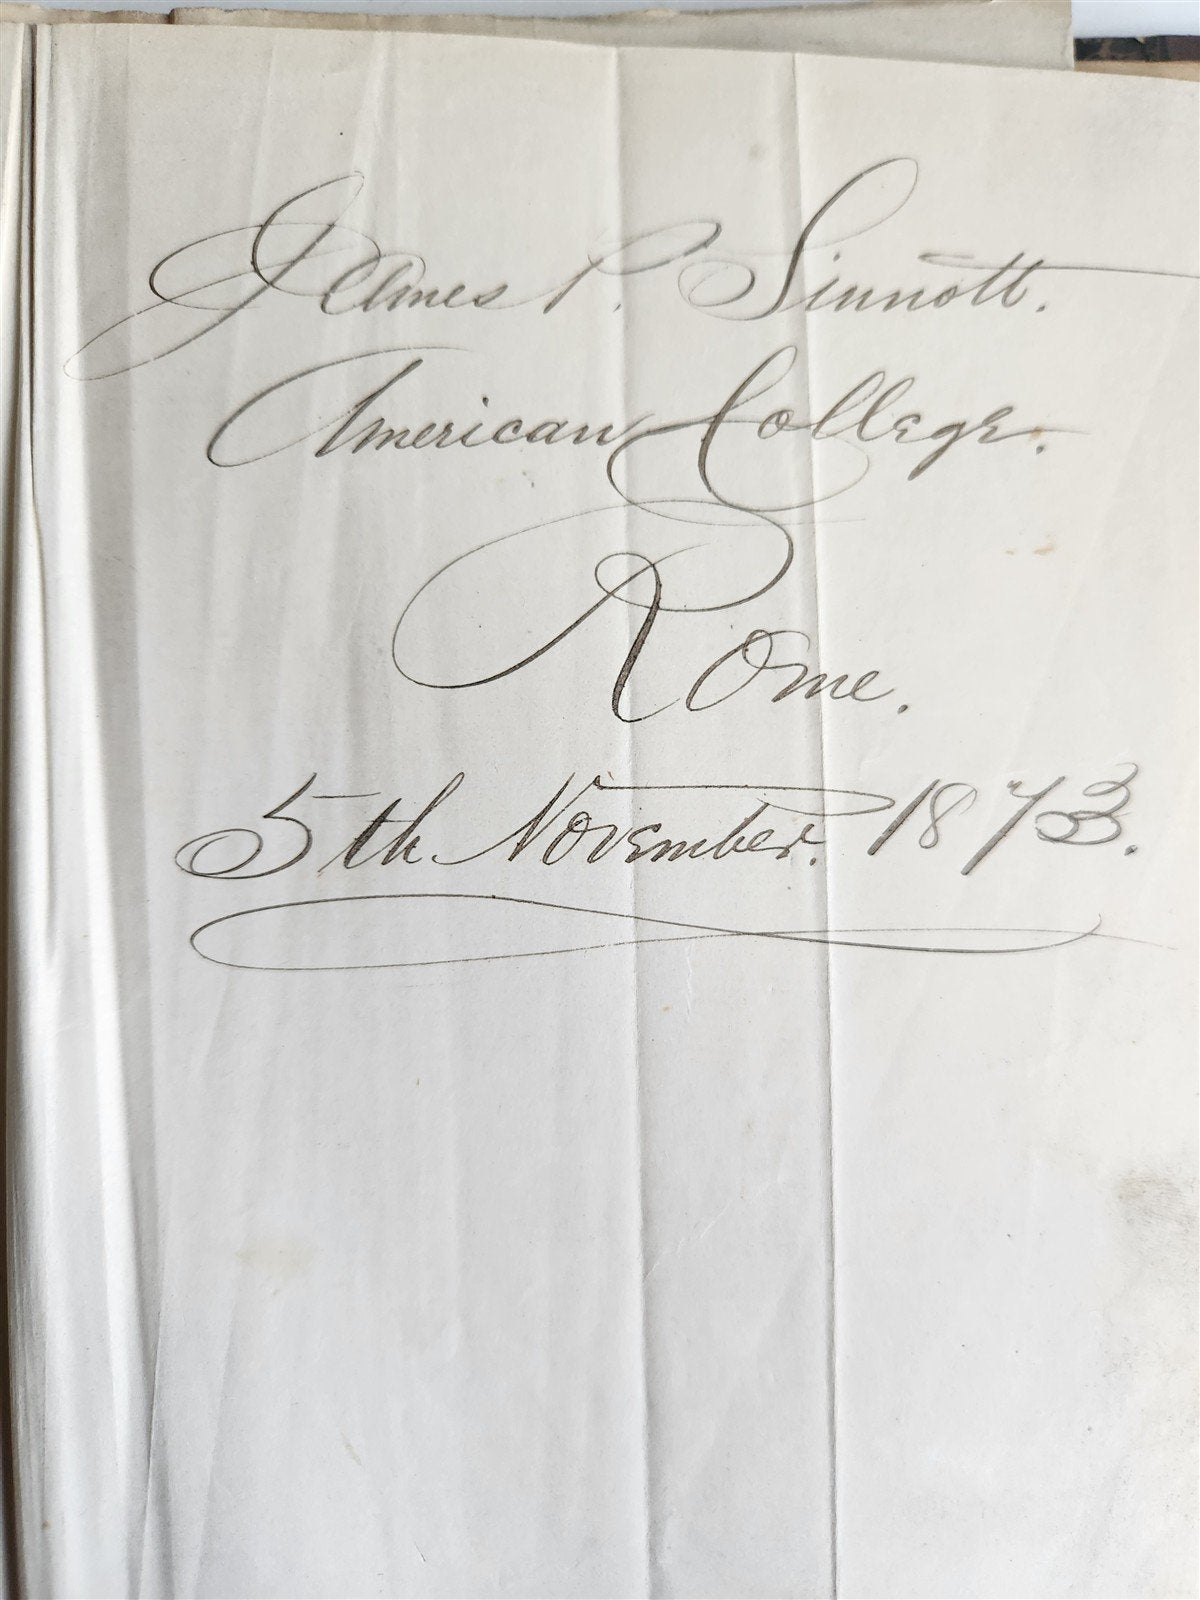 James P. Sinnott.
American College.
Rome.
5th November. 1873.